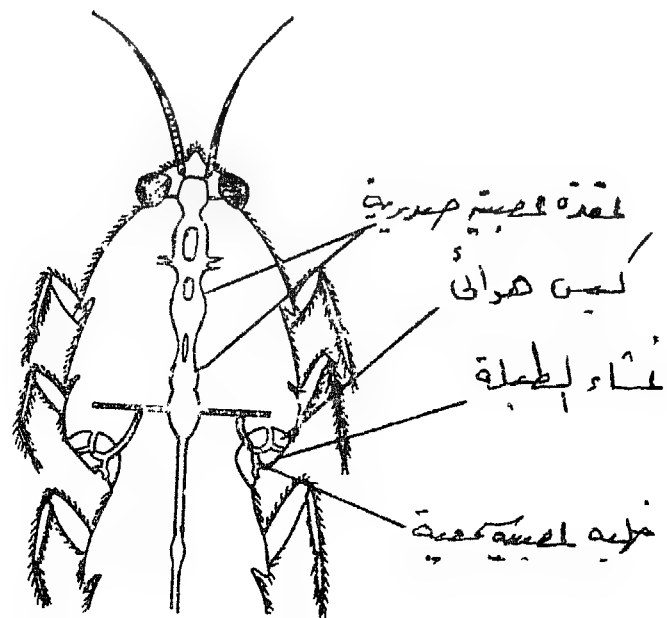 العقدة العصبية الصدرية
كيس هوائى
غشاء الطبلة
خلية عصبية سمعية